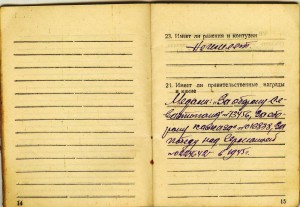 23. Имеет ли ранения и контузии
24. Имеет ли правительственные награды
и какие
Медали: „За оборону Се-
вастополя"
За обо-
рону Кавказа" За
победу над Германией
1945 г.
14
15